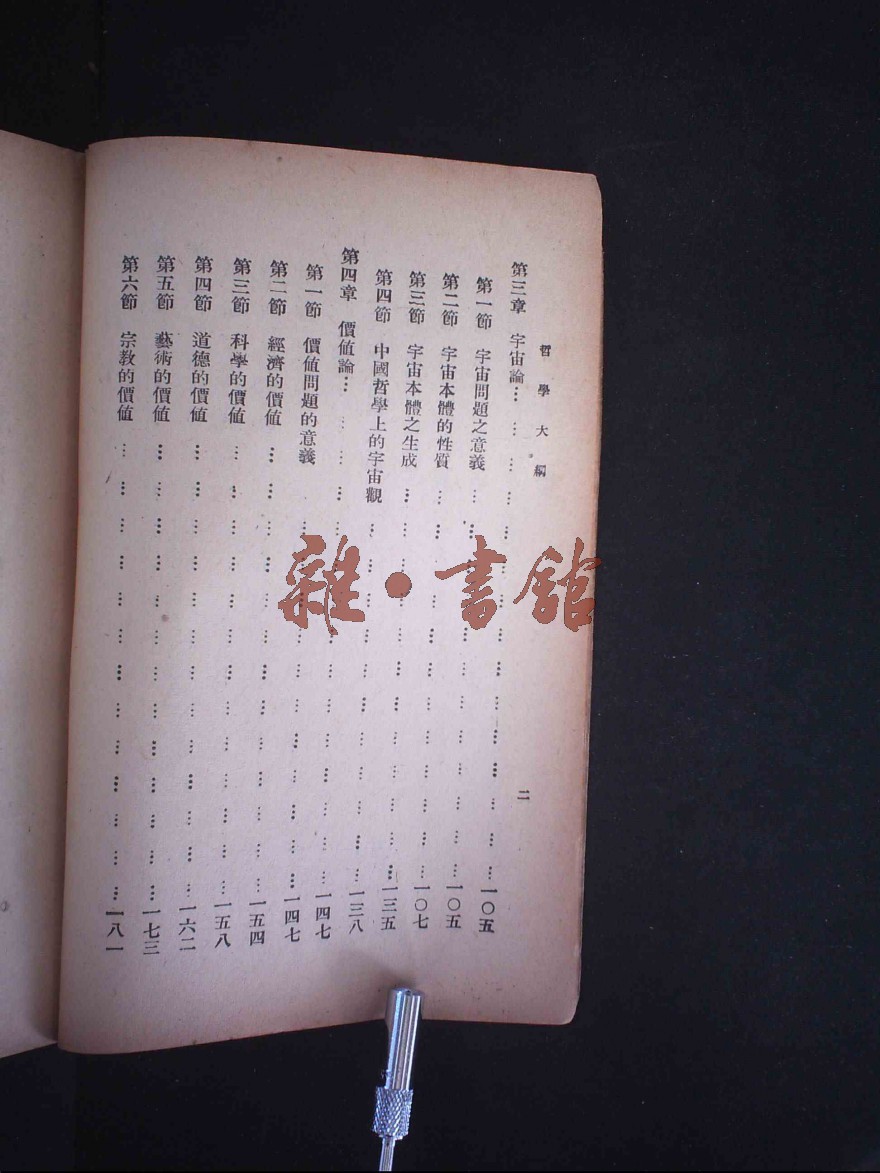 哲學大綱
二
第三章 宇宙論………………一〇五
第一節 宇宙問題之意義………………一〇五
第二節 宇宙本體的性質………………一〇七
第三節 宇宙本體之生成………………一三五
第四節 中國哲學上的宇宙觀………………一三八
第四章 價值論………………一四七
第一節 價值問題的意義………………一四七
第二節 經濟的價值………………一五四
第三節 科學的價值………………一五八
第四節 道德的價值………………一六二
第五節 藝術的價值………………一七三
第六節 宗教的價值………………一八一
雜·書館